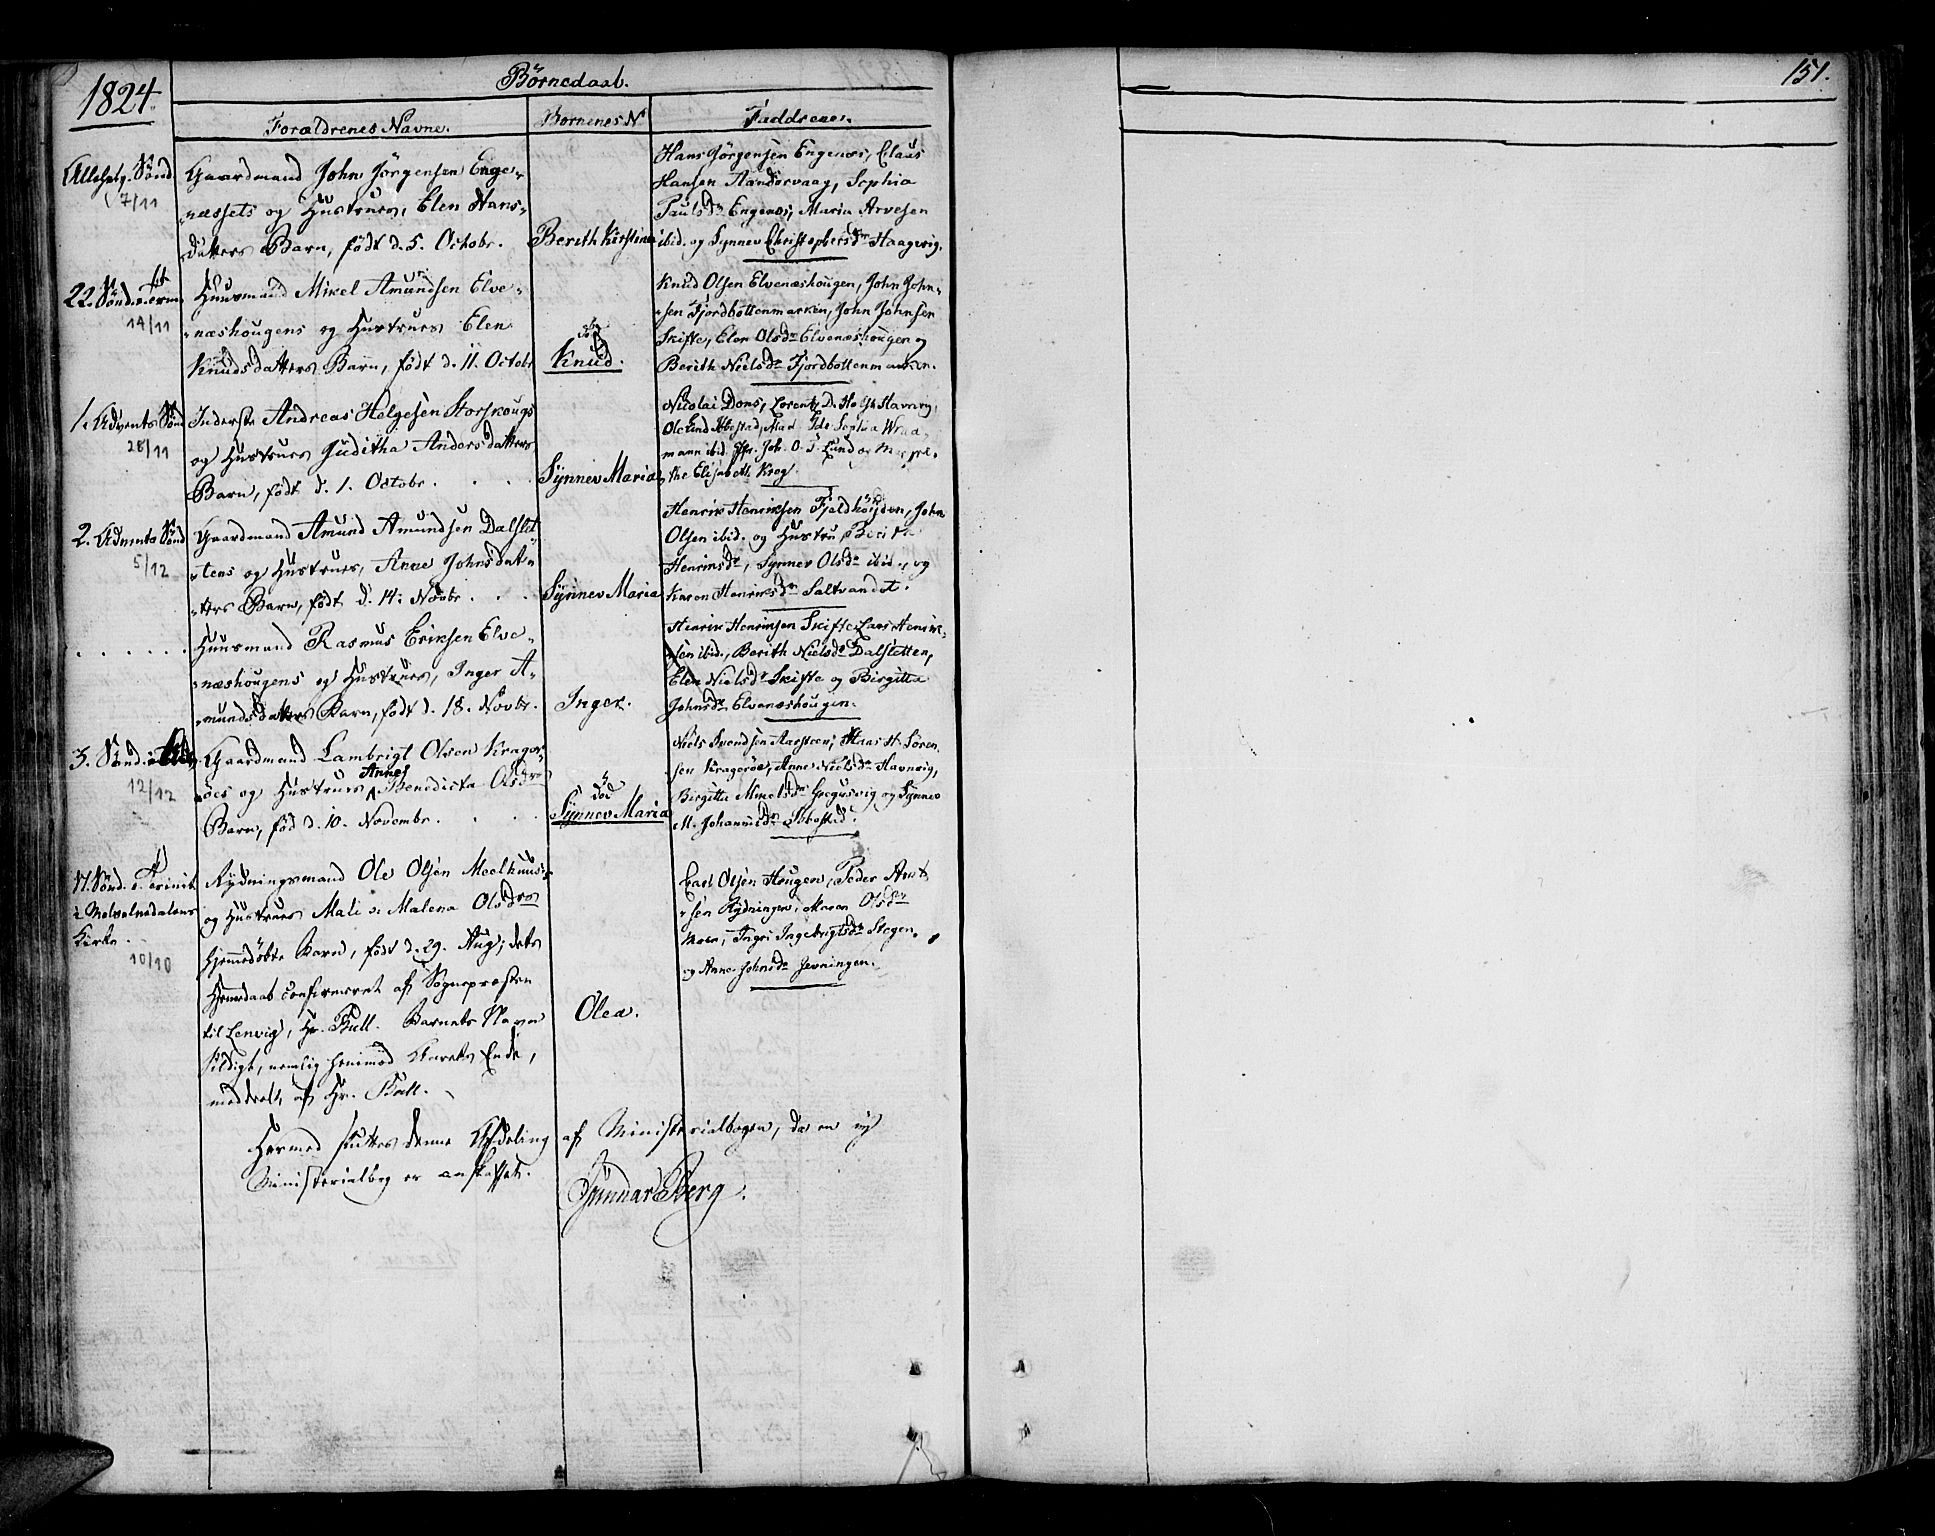 1824.
Børnedaab.
151.
Forældrenes Navne.
Børnenes N
Faddrene.
Allehelg. Sønd.
7/11
Gaardmand John Jörgensen Enge-
næssets og Hustrues, Elen Hans-
datters Barn, født d. 5. Octobr.
Berith Kirstina
Hans Jörgensen Engenæs, Claus
Hansen Aandervaag, Sophia
Paulsdr Engenæs, Maria Arvesen
ibid. og Synnev Christophersdr Haagvig.
22. Sønd. e. Trin.
14/11
Huusmand Mikel Amundsen Elve-
næshougens og Hustrues Elen
Knudsdatters Barn, født d. 11. Octobr
død
Knud.
Knud Olsen Elvenæshougen, John John-
sen Fjordbottenmarken, John Johnsen
Skifte, Elen Olsdr Elvenæshougen og
Berith Nielsdr Fjordbottenmarken.
1. Advents Sønd
28/11
Inderste Andreas Helgesen Storskougs
og Hustrues Juditha Andersdatters
Barn, født d. 1. Octobr.
Synnev Maria
Nicolai Dons, Lorentz D. Holst Havnvig,
Ole Lind Ibbestad, Mad. Ide Sophia Wraa-
mann ibid. Jfr. Joh. O. T. Lund og
Elisabeth Krog.
2. Advents Sønd
5/12
Gaardmand Amund Amundsen Dalslet-
tens og Hustrues, Anne Johnsdat-
ters Barn, født d. 14. Novbr.
Synnev Maria
Henrik Henriksen Fjeldhöyden, John
Olsen ibid. og Hustru, Berith
Henriksdr, Synnev Olsdr ibid. og
Karen Henriksdr Saltvandet.
Huusmand Rasmus Eriksen Elve-
næshougens og Hustrues, Inger A-
mundsdatters Barn, født d. 18. Novbr.
Inger.
Henrik Henriksen Skifte, Lars Henrik-
sen ibid., Berith Nielsdr Dalsletten,
Elen Nielsdr Skifte og Birgitta
Johnsdr Elvenæshougen.
3. Sønd. i Adv.
12/12
Gaardmand Lambrigt Olsen Krager-
öes og Hustrues Anne Benedicta Olsdrs
Barn, född d. 10. Novembr.
død
Synnev Maria
Niels Svendsen Aarsteen, Hans H. Sören-
sen Krageröe, Anne Nielsdr Havnvig,
Birgitta Mikelsdr Grøgusvig og Synnev
M. Johannesdr Ibbestad.
17. Sønd. e. Trinit.
i Maalselvedalens
Kirke.
10/10
Rydningsmand Ole Olsen Moelhuus
og Hustrues Mali ɔ: Malena Olsdrs
hjemmedøbte Barn, født d. 29. Aug; dets
Hjemedaab confirmeret af Sognepresten
til Lenvig, Hr. Bull. Barnets Navn
sildigt, nemlig henimod Aarets Ende,
meddeelt af Hr. Bull.
Olea.
Carl Olsen Hougen, Peder Arnt-
sen Rydningen, Maren Olsdr
Moen, Ingri Ingebrigtsdr Stegen.
og Anne Johnsdr Jevningen.
Hermed sluttes denne Afdeling af Ministerialbogen, da en ny
Ministerialbog er anskaffet.
Gunnar Berg.